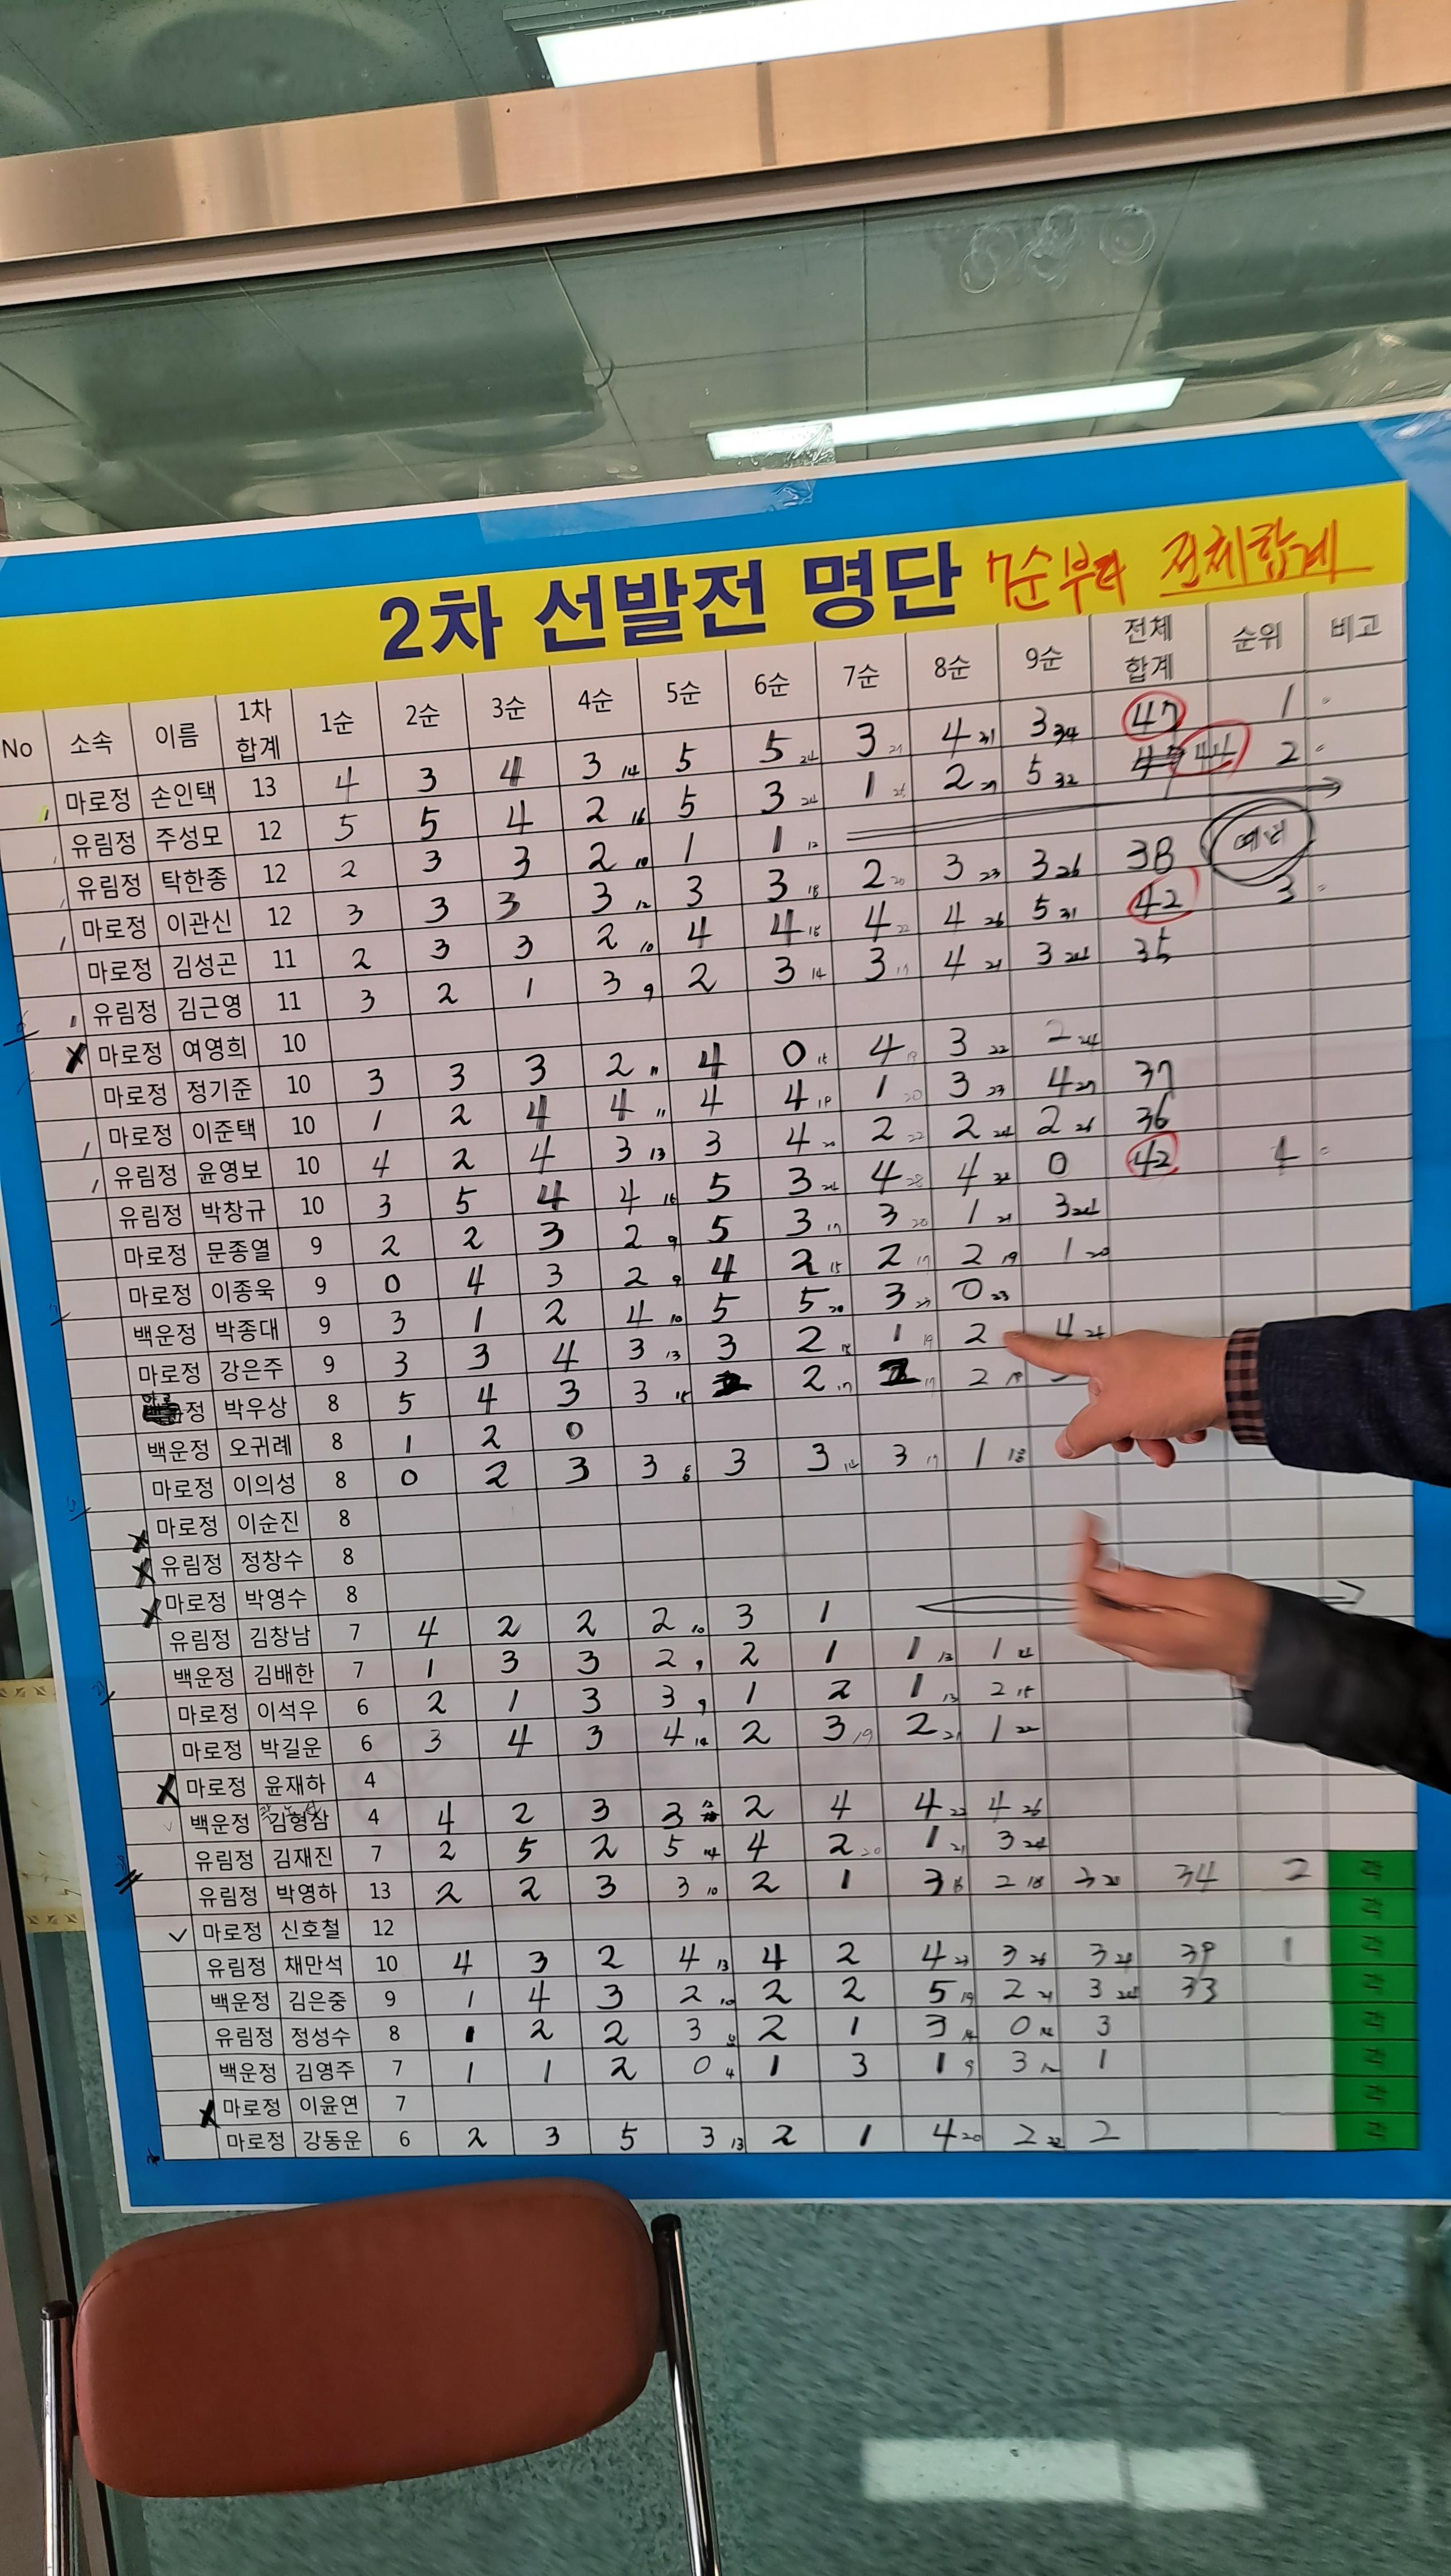 2차 선발전 명단 7순부터 전체합계
No 소속 이름 1차 합계 1순 2순 3순 4순 5순 6순 7순 8순 9순 전체 합계 순위 비고
마로정 손인택 13 4 3 4 3 14 5 5 24 3 27 4 31 3 34 47 1
유림정 주성모 12 5 5 4 2 16 5 3 24 1 25 2 27 5 32 44 2
유림정 탁한종 12 2 3 3 2 10 1 1 12
마로정 이관신 12 3 3 3 3 12 3 3 18 2 20 3 23 3 26 38
마로정 김성곤 11 2 3 3 2 10 4 4 18 4 22 4 26 5 31 42 3
유림정 김근영 11 3 2 1 3 9 2 3 14 3 17 4 21 3 24 35
마로정 여영희 10
마로정 정기준 10 3 3 3 2 11 4 0 15 4 19 3 22 2 24
마로정 이준택 10 1 2 4 4 11 4 4 19 1 20 3 23 4 27 37
유림정 윤영보 10 4 2 4 3 13 3 4 20 2 22 2 24 2 26 36
유림정 박창규 10 3 5 4 4 16 5 3 24 4 28 4 32 0 42 4
마로정 문종열 9 2 2 3 2 9 5 3 17 3 20 1 21 3 24
마로정 이종욱 9 0 4 3 2 9 4 2 15 2 17 2 19 1 20
백운정 박종대 9 3 1 2 4 10 5 5 20 3 23 0 23
마로정 강은주 9 3 3 4 3 13 3 2 18 1 19 2 4
정 박우상 8 5 4 3 3 15 2 17 17 2 19
백운정 오귀례 8 1 2 0
마로정 이의성 8 0 2 3 3 8 3 3 14 3 17 1 18
마로정 이순진 8
유림정 정창수 8
마로정 박영수 8
유림정 김창남 7 4 2 2 2 10 3 1
백운정 김배한 7 1 3 3 2 9 2 1 1 13 1 14
마로정 이석우 6 2 1 3 3 9 1 2 1 13 2 15
마로정 박길운 6 3 4 3 4 14 2 3 19 2 21 1 22
마로정 윤재하 4
백운정 김형삼 4 4 2 3 3 2 4 4 22 4 26
유림정 김재진 7 2 5 2 5 14 4 2 20 1 21 3 24
유림정 박영하 13 2 2 3 3 10 2 1 3 16 2 18 3 20 34 2 각
마로정 신호철 12 각
유림정 채만석 10 4 3 2 4 13 4 2 4 23 3 26 3 29 39 1 각
백운정 김은중 9 1 4 3 2 10 2 2 5 19 2 21 3 24 33 각
유림정 정성수 8 1 2 2 3 8 2 1 3 14 0 14 3 각
백운정 김영주 7 1 1 2 0 4 1 3 1 9 3 12 1 각
마로정 이윤연 7 각
마로정 강동운 6 2 3 5 3 13 2 1 4 20 2 22 2 각